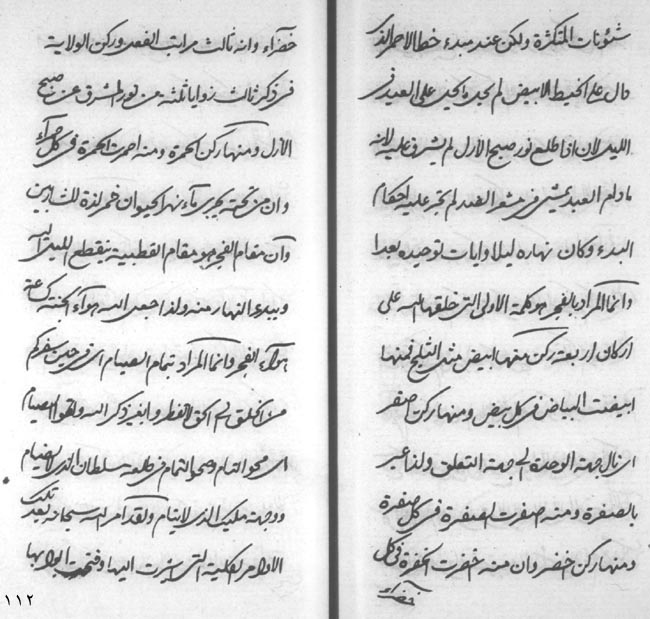 شئونات المتكثرة ولكن عند مبدء خط الاحمر الذى
قال على الخيط الابيض لم يجب واجب على العبد فى
الليل لان اذا طلع نور صبح الأزل لم يشرق عليه لانه
مادام العبد يمشى فى العبد لم تجر عليه احكام
البدء وكان نهاره ليلا وايات توحيده بعدا
وانما المراد بالفجر هو كلمة الاولى التى خلقها الله على
اركان اربعة ركن منها ابيض مثل الثلج فمنها
ابيضت البياض فى كل بيض ومنها ركن اصفر
اى نال جهة الوحدة الى جهة التعلق ولذا عبر
بالصفرة ومنه صفرت الصفرة فى كل صفرة
ومنها ركن خضر وان منه خضرت الخضرة فى كل
خضراء
خضرآء وانه ثالث مراتب الفعل وركن الولاية
فى ذكر ثالث زوايا ثلثه من نور المشرق عن صبح
الأزل ومنها ركن الحمرة ومنه احمرت الحمرة فى كل حمرآء
وان من تحته يجرى مآء نهر الحيوان خمر لذة للشاربين
وآن مقام الفجر هو مقام القطبية ينقطع الليل اليه
ويبدء النهار منه ولذا جعل الله هوآء الجنة
هوآء الفجر وانما المراد بتمام الصيام اى حين سفركم
من الخلق الى الحق لا تفطروا بغير ذكر الله واتموا الصيام
اى محو التمام وصحو التمام فى طلعة سلطان الذى لا يضام
ووجهة مليك الذى لا ينام ولقد امر الله سبحانه بعد تلك
الاوامر الكلية التى اشرت اليها وفتحت ابوابها
١١٢